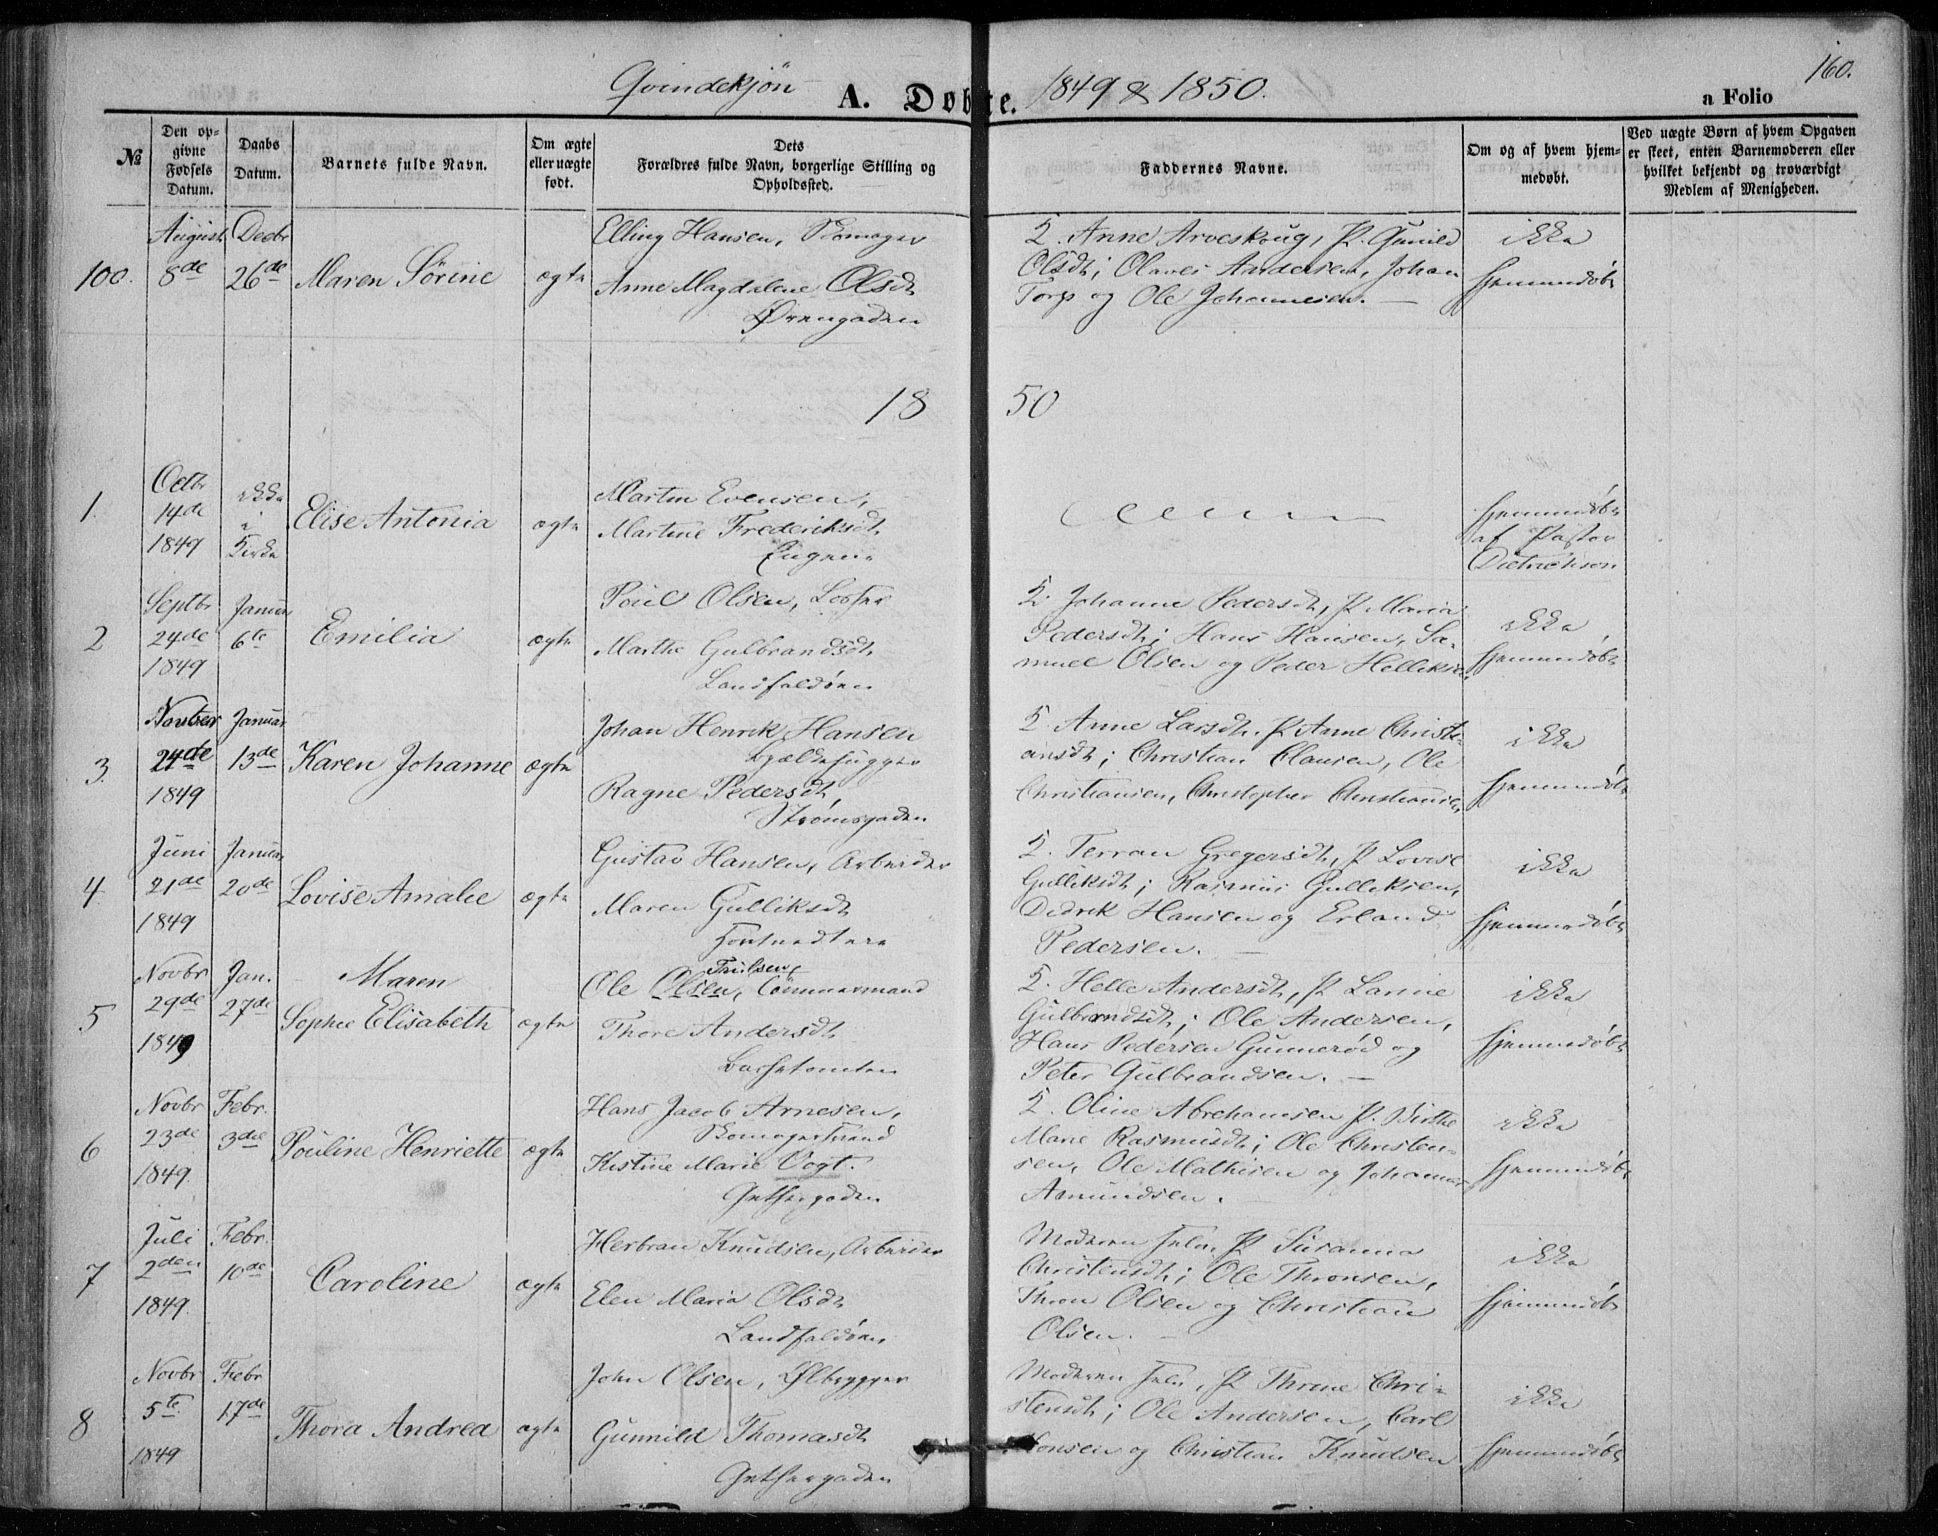 160.
Qvindekjön A. Døbte. 1849 & 1850. a Folio
№
Den op-
givne
Fødsels
Datum.
Daabs
Datum.
Barnets fulde Navn.
Om ægte
eller uægte
født.
Dets
Forældres fulde Navn, borgerlige Stilling og
Opholdssted.
Faddernes Navne.
Om og af hvem hjem-
medøbt.
Ved uægte Børn af hvem Opgaven
er skeet, enten Barnemoderen eller
hvilket bekjendt og troværdigt
Medlem af Menigheden.
100.
August
8de
Decbr
26de
Maren Sörine
ægte
Elling Hansen, Skomager
Anne Magdalene Olsdt
Ørengaden
Q. Anne Arveskoug, P. Gunild
Olsdt; Olaves Andersen, Johan
Torp og Ole Johannesen. —
ikke
hjemmedøbt
18 50
1.
Octbr
14de
1849
ikke
i
Kirke
Elise Antonia
ægte
Martin Evensen,
Martine Frederiksdt
Engene
hjemmedøbt
af Pastor
Dietrichson
2
Septbr
24de
1849
Januar
6te
Emilia
ægte
Poul Olsen, Lodser
Marthe Gulbrandsdt
Landfaldøen
Q. Johanne Pedersdt, P. Maria
Pedersdt; Hans Hansen, Sa-
muel Olsen og Peder Helliksen
ikke
hjemmedøbt
3
Novber
24de
1849
Januar
13de
Karen Johanne
ægte
Johan Henrik Hansen
Ragne Pedersdt,
Strømsgaden
Q. Anne Larsdt. P. Anne Christi-
ansdt; Christian Clausen, Ole
Christiansen, Christopher Christiansen
ikke
hjemmedøbt
4
Juni
21de
1849
Januar
20de
Lovise Amalie
ægte
Gustav Hansen, Arbeider
Maren Gulliksdt
Q. Terran Gregersdt, P. Lovise
Gulliksdt; Rasmus Gulliksen,
Didrik Hansen og Erland
Pedersen. —
ikke
hjemmedøbt
5
Novbr
29de
1849
Jan.
27de
Maren
Sophie Elisabeth
ægte
Trulsen,
Ole Olsen, Tømmermand
Thore Andersdt
Q. Helle Andersdt, P. Lanne
Gulbrandsdt; Ole Andersen,
Hans Pedersen Gunnerød og
Peter Gulbrandsen. —
ikke
hjemmedøbt
6
Novbr
23de
1849.
Febr.
3die
Pouline Henriette
ægte
Hans Jacob Arnesen,
Skomagersvend
Kistine Marie Vogt.
Gethergaden
Q. Oline Abrehamsen P. Birthe
Marie Rasmusdt; Ole Christen-
sen, Ole Mathisen og Johannes
Asmundsen.
ikke
hjemmedøbt
7
Juli
2den
1849.
Febr.
10de
Caroline
ægte
Herbran Knudsen, Arbeider
Elen Maria Olsdt
Landfaldøen
Moderen selv, P. Susanna
Christensdt; Ole Thronsen,
Thron Olsen og Christian
Olsen. —
ikke
hjemmedøbt
8
Novbr
5te
1849
Febr
17de
Thora Andrea
ægte
John Olsen, Ølbrygger
Gunnild Thomasdt
Gethergaden
Moderen selv, P. Thrine Chri-
stensdt; Ole Andersen, Carl
Monsen og Christian Knudsen
ikke
hjemmedøbt